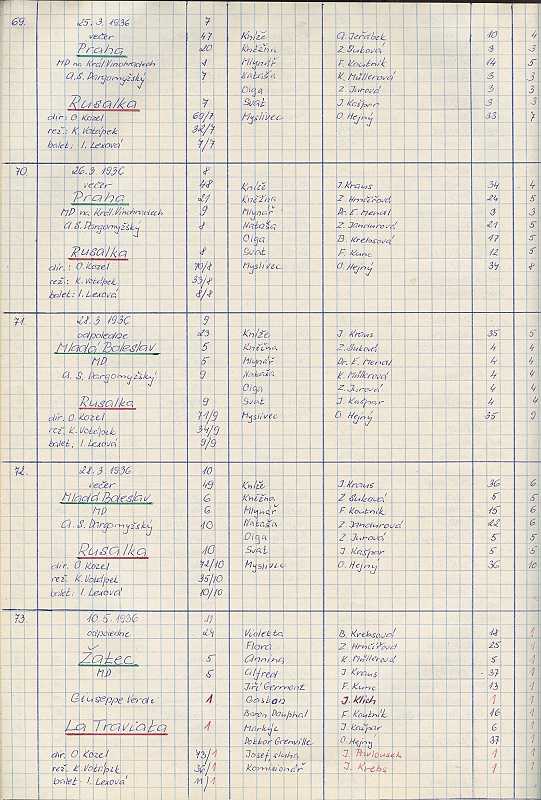 69. 25.3.1936 7
večer 47 Kníže A. Jeřábek 10 4
Praha 20 Kněžna Z. Suková 3 3
MD na Král. Vinohradech 8 Mlynář F. Koutník 14 5
A.S. Dargomyžský 7 Nataša K. Müllerová 3 3
Olga Z. Jurová 3 3
Rusalka 7 Svat J. Kašpar 3 3
dir: O. Kozel 69/7 Myslivec O. Hejný 33 7
rež: K. Votápek 32/7
balet: I. Lexová 7/7
70. 26.3.1936 8
večer 48 Kníže J. Kraus 34 4
Praha 21 Kněžna Z. Hrnčířová 24 5
MD na Král. Vinohradech 9 Mlynář Dr. E. Menal 3 3
A.S. Dargomyžský 8 Nataša Z. Jandurová 21 5
Olga B. Krebsová 17 5
Rusalka 8 Svat F. Kunc 12 5
dir.: O. Kozel 70/8 Myslivec O. Hejný 34 8
rež.: K. Votápek 33/8
balet: I. Lexová 8/8
71. 28.3.1936 9
odpoledne 23 Kníže J. Kraus 35 5
Mladá Boleslav 5 Kněžna Z. Suková 4 4
MD 5 Mlynář Dr. E. Menal 4 4
A.S. Dargomyžský 9 Nataša K. Müllerová 4 4
Olga Z. Jurová 4 4
Rusalka 9 Svat J. Kašpar 4 4
dir. O. Kozel 71/9 Myslivec O. Hejný 35 9
rež. K. Votápek 34/9
balet: I. Lexová 9/9
72. 28.3.1936 10
večer 49 Kníže J. Kraus 36 6
Mladá Boleslav 6 Kněžna Z. Suková 5 5
MD 6 Mlynář F. Koutník 15 6
A.S. Dargomyžský 10 Nataša Z. Jandurová 22 6
Olga Z. Jurová 5 5
Rusalka 10 Svat J. Kašpar 5 5
dir. O. Kozel 72/10 Myslivec O. Hejný 36 10
rež. K. Votápek 35/10
balet: I. Lexová 10/10
73. 10.5.1936 11
odpoledne 24 Violetta B. Krebsová 18 1
Flora Z. Hrnčířová 25 1
Žatec 5 Annina K. Müllerová 5 1
MD 5 Alfred J. Kraus 37 1
Jiří Germont F. Kunc 13 1
Giuseppe Verdi 1 Gaston J. Klich 1 1
Baron Douphal F. Koutník 16 1
La Traviata 1 Markýz J. Kašpar 6 1
Doktor Grenville O. Hejný 37 1
dir. O. Kozel 73/1 Josef sluha J. Pavlousek 1 1
rež. K. Votápek 36/1 Komisionář J. Krebs 1 1
balet: I. Lexová 11/1